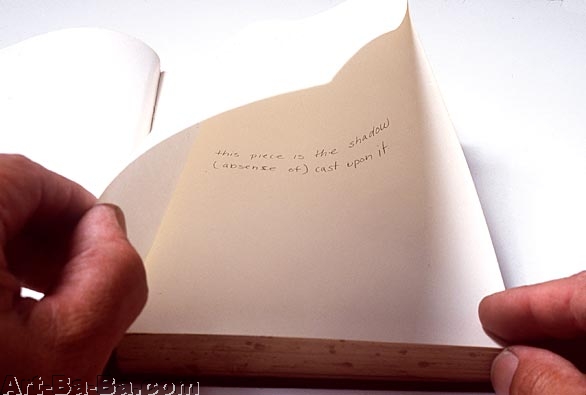 this piece is the shadow
(absence of) cast upon it
Art-Ba-Ba.com